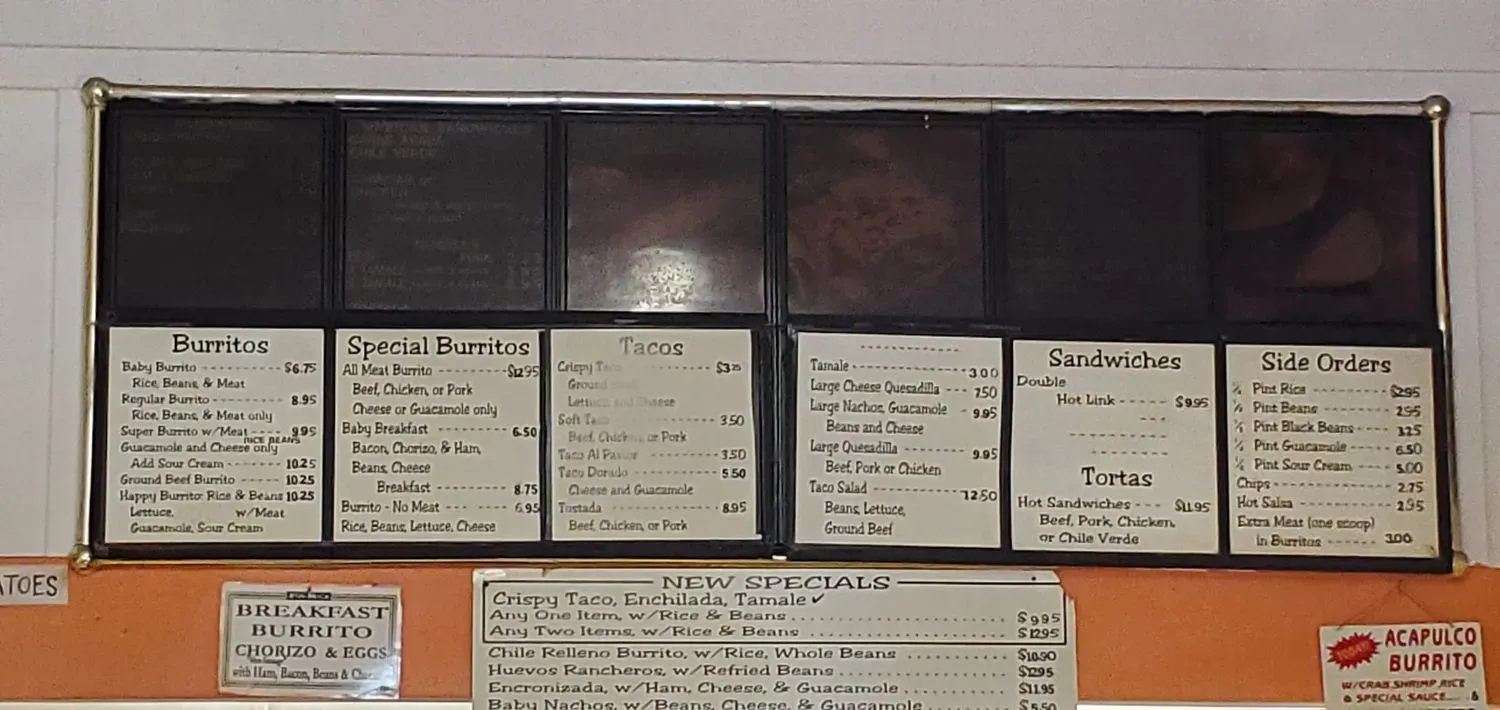 Burritos
Baby Burrito ---------- $6.75
Rice, Beans, & Meat
Regular Burrito --------- 8.95
Rice, Beans, & Meat only
Super Burrito w/Meat ---- 9.95
RICE BEANS
Guacamole and Cheese only
Add Sour Cream ------- 10.25
Ground Beef Burrito ----- 10.25
Happy Burrito Rice & Beans 10.25
Lettuce, w/Meat
Guacamole, Sour Cream
Special Burritos
All Meat Burrito --------- $12.95
Beef, Chicken, or Pork
Cheese or Guacamole only
Baby Breakfast ---------- 6.50
Bacon, Chorizo, & Ham,
Beans, Cheese
Breakfast -------- 8.75
Burrito - No Meat --- ---- 6.95
Rice, Beans, Lettuce, Cheese
Tacos
Crispy Taco -------- $3.25
Ground
Lettuce and Cheese
Soft Taco ------------- 3.50
Beef, Chicken, or Pork
Taco Al Pastor ---------- 3.50
Taco Dorado ----------- 5.50
Cheese and Guacamole
Tostada -------------- 8.95
Beef, Chicken, or Pork
Tamale --------------- 3.00
Large Cheese Quesadilla --- 7.50
Large Nachos, Guacamole - 9.95
Beans and Cheese
Large Quesadilla -------- 9.95
Beef, Pork or Chicken
Taco Salad ------------ 12.50
Beans, Lettuce,
Ground Beef
Sandwiches
Double
Hot Link ----- $9.95
Tortas
Hot Sandwiches --- $11.95
Beef, Pork, Chicken,
or Chile Verde
Side Orders
Pint Rice --------- $2.95
Pint Beans -------- 2.95
Pint Black Beans ---- 3.25
Pint Guacamole ---- 6.50
Pint Sour Cream --- 5.00
Chips -------------- 2.75
Hot Salsa ----------- 2.95
Extra Meat (one scoop)
in Burritos ------ 3.00
ATOES
BREAKFAST
BURRITO
CHORIZO & EGGS
with Ham, Bacon, Beans &
NEW SPECIALS
Crispy Taco, Enchilada, Tamale ✓
Any One Item, w/Rice & Beans ........ $9.95
Any Two Items, w/Rice & Beans ........ $12.95
Chile Relleno Burrito, w/Rice, Whole Beans ........ $10.90
Huevos Rancheros, w/Refried Beans ........ $12.95
Encronizada, w/Ham, Cheese, & Guacamole ........ $11.95
Baby Nachos, w/Beans, Cheese, & Guacamole ........ $5.50
TODAY!
ACAPULCO
BURRITO
W/CRAB SHRIMP RICE
& SPECIAL SAUCE